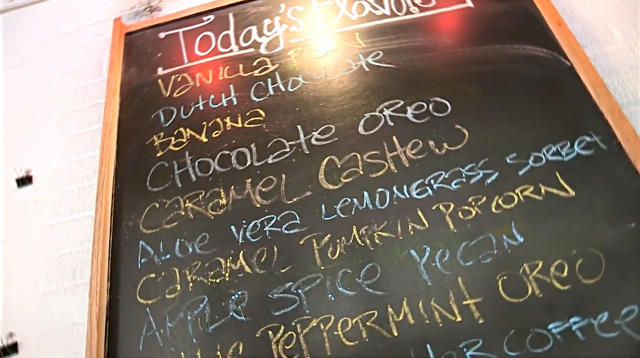 Today's Flavors
VANILLA
DUTCH CHOCOLATE
BANANA
CHOCOLATE OREO
CARAMEL CASHEW
ALOE VERA LEMONGRASS SORBET
CARAMEL PUMPKIN POPCORN
APPLE SPICE PECAN
PEPPERMINT OREO
COFFEE